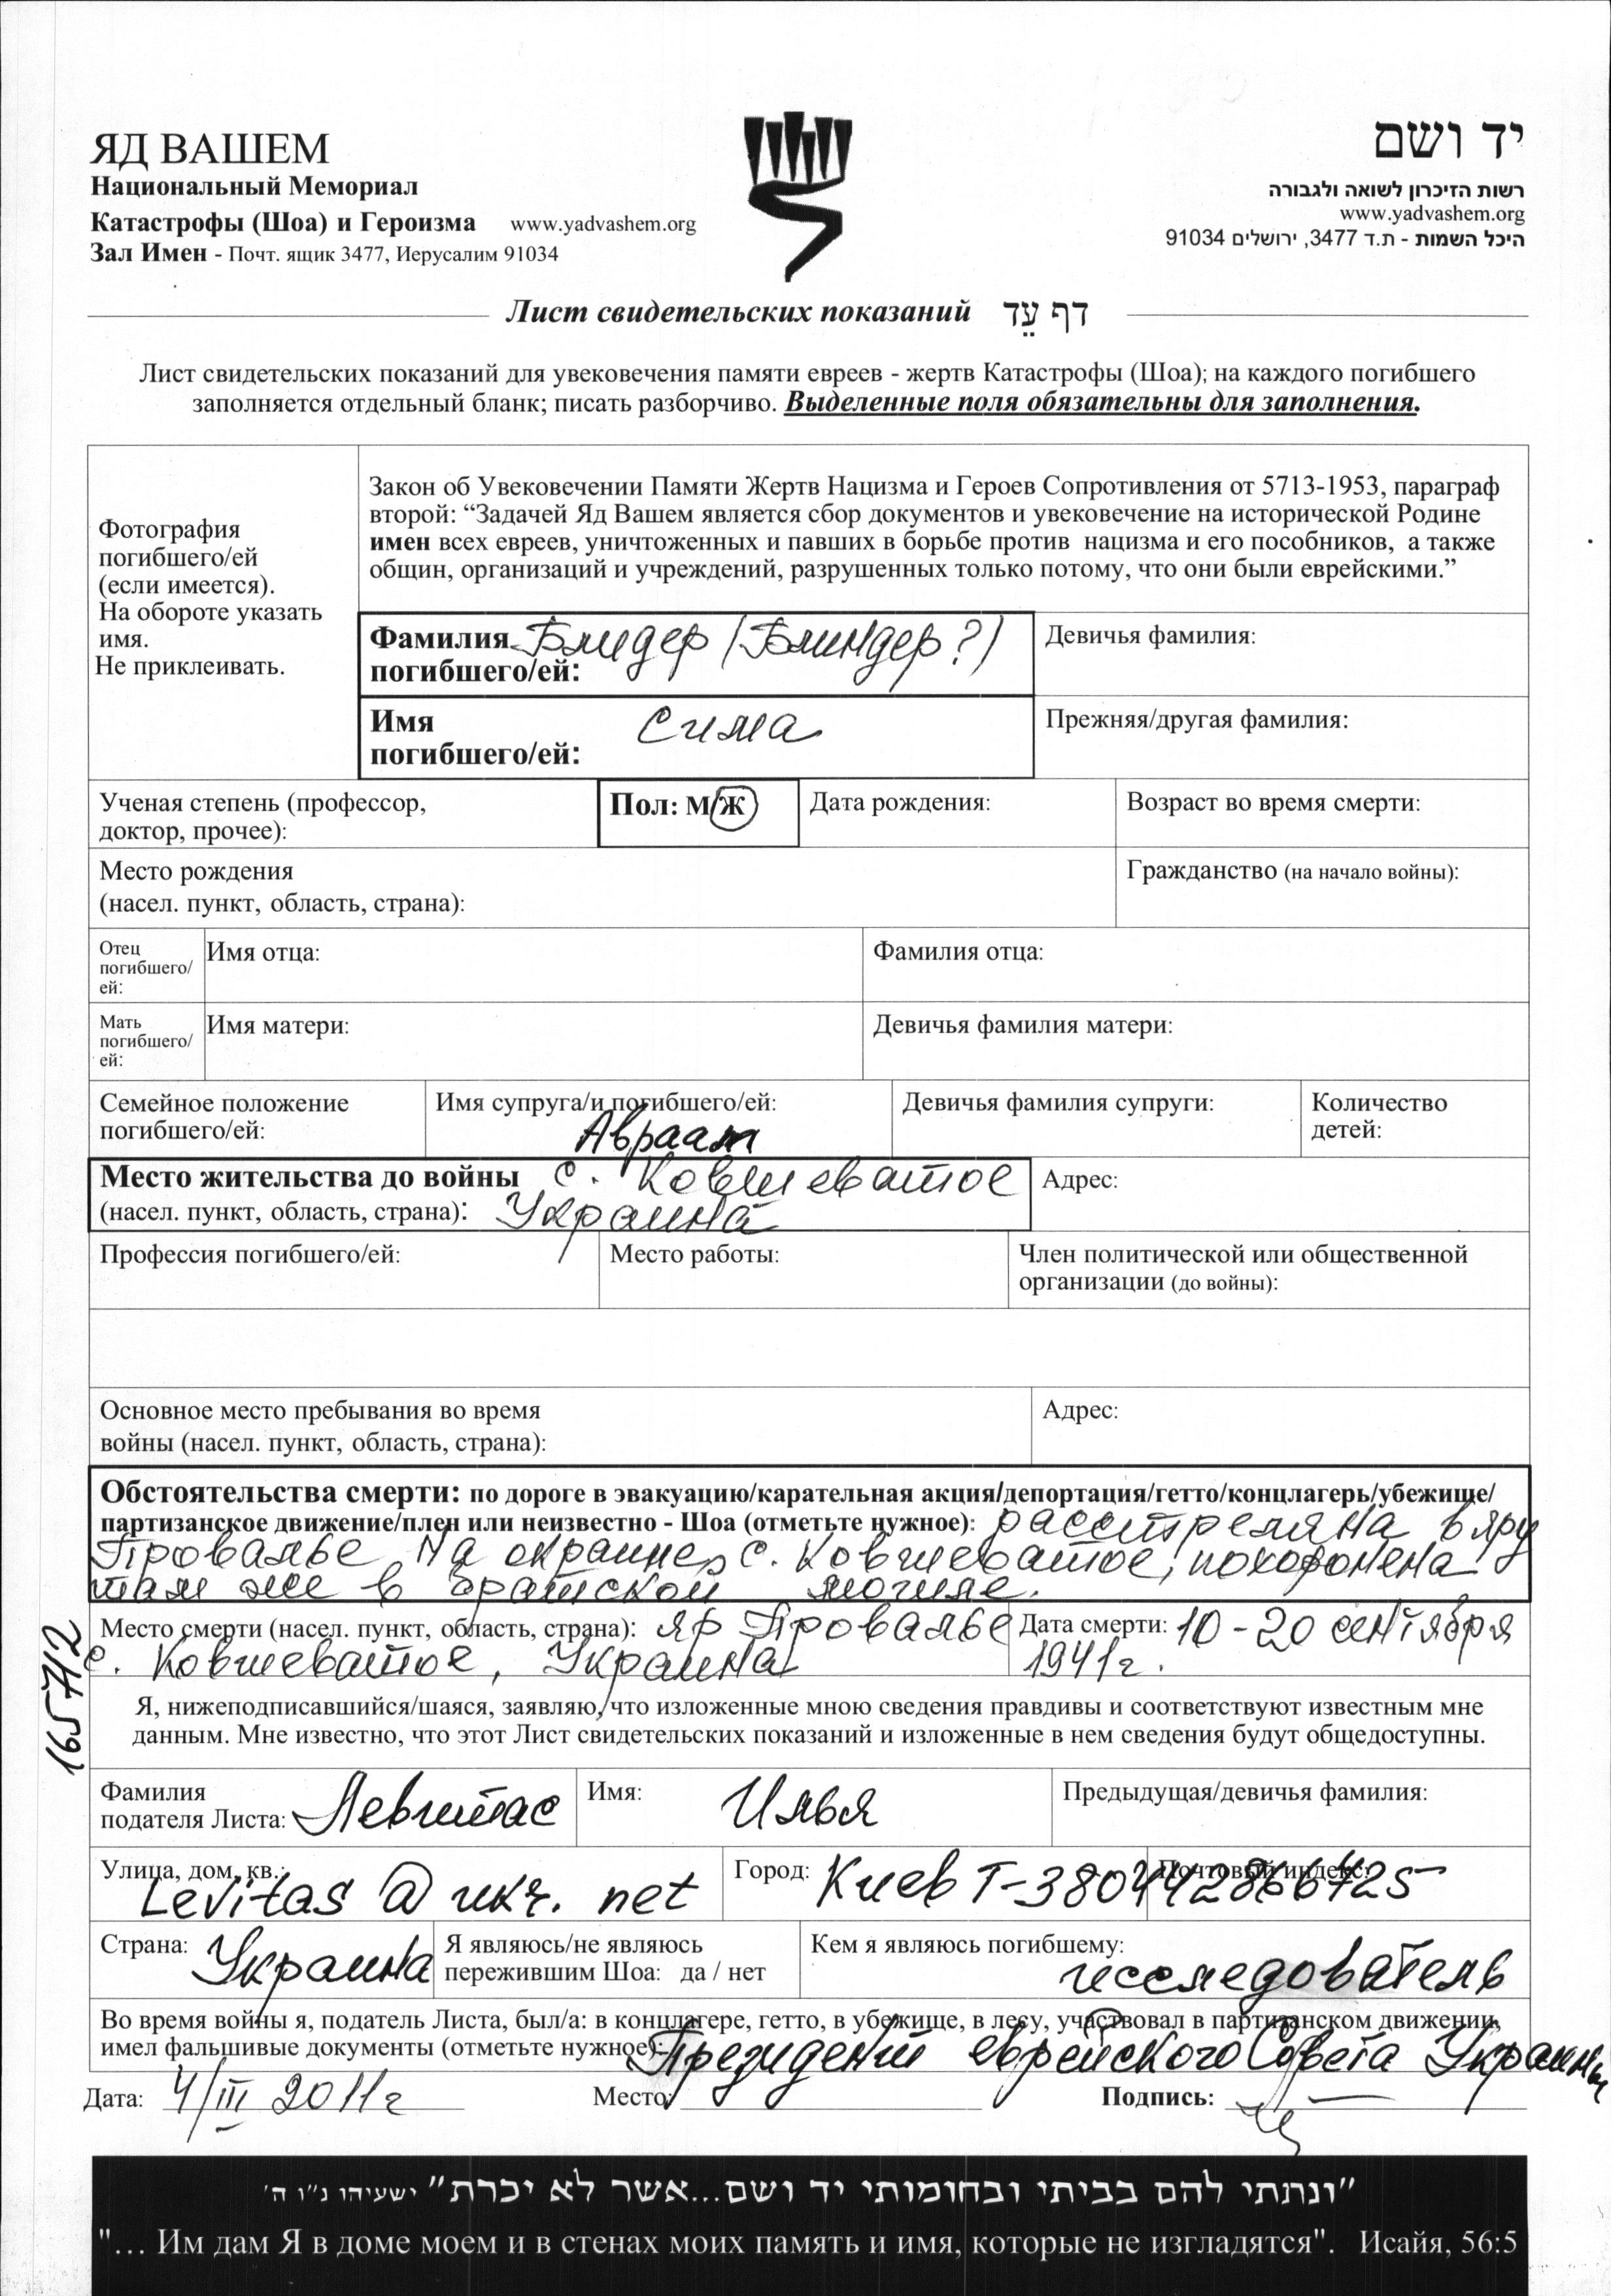 ЯД ВАШЕМ
Национальный Мемориал
Катастрофы (Шоа) и Героизма www.yadvashem.org
Зал Имен - Почт. ящик 3477, Иерусалим 91034
יד ושם
רשות הזיכרון לשואה ולגבורה
www.yadvashem.org
היכל השמות - ת.ד 3477, ירושלים 91034
Лист свидетельских показаний דף עֵד
Лист свидетельских показаний для увековечения памяти евреев - жертв Катастрофы (Шоа); на каждого погибшего
заполняется отдельный бланк; писать разборчиво. Выделенные поля обязательны для заполнения.
Фотография
погибшего/ей
(если имеется).
На обороте указать
имя.
Не приклеивать.
Закон об Увековечении Памяти Жертв Нацизма и Героев Сопротивления от 5713-1953, параграф
второй: “Задачей Яд Вашем является сбор документов и увековечение на исторической Родине
имен всех евреев, уничтоженных и павших в борьбе против нацизма и его пособников, а также
общин, организаций и учреждений, разрушенных только потому, что они были еврейскими.”
Фамилия Блидер (Блиндер?)
погибшего/ей:
Девичья фамилия:
Имя Сима
погибшего/ей:
Прежняя/другая фамилия:
Ученая степень (профессор,
доктор, прочее):
Пол: М/Ж
Дата рождения:
Возраст во время смерти:
Место рождения
(насел. пункт, область, страна):
Гражданство (на начало войны):
Отец
погибшего/
ей:
Имя отца:
Фамилия отца:
Мать
погибшего/
ей:
Имя матери:
Девичья фамилия матери:
Семейное положение
погибшего/ей:
Имя супруга/и погибшего/ей:
Авраам
Девичья фамилия супруги:
Количество
детей:
Место жительства до войны с. Ковшеватое
(насел. пункт, область, страна): Украина
Адрес:
Профессия погибшего/ей:
Место работы:
Член политической или общественной
организации (до войны):
Основное место пребывания во время
войны (насел. пункт, область, страна):
Адрес:
Обстоятельства смерти: по дороге в эвакуацию/карательная акция/депортация/гетто/концлагерь/убежище/
партизанское движение/плен или неизвестно - Шоа (отметьте нужное): расстреляна в яру
Провалье на окраине с. Ковшеватое, похоронена
там же в братской могиле.
Место смерти (насел. пункт, область, страна): яр Провалье
с. Ковшеватое, Украина
Дата смерти: 10-20 сентября
1941г.
165712
Я, нижеподписавшийся/шаяся, заявляю, что изложенные мною сведения правдивы и соответствуют известным мне
данным. Мне известно, что этот Лист свидетельских показаний и изложенные в нем сведения будут общедоступны.
Фамилия
податела Листа: Левитас
Имя: Илья
Предыдущая/девичья фамилия:
Улица, дом, кв.:
Levitas @ ukr. net
Город: Киев Т-380442866725
Почтовый индекс:
Страна: Украина
Я являюсь/не являюсь
пережившим Шоа: да / нет
Кем я являюсь погибшему:
исследователь
Во время войны я, податель Листа, был/а: в концлагере, гетто, в убежище, в лесу, участвовал в партизанском движении,
имел фальшивые документы (отметьте нужное): Президент еврейского Совета Украины
Дата: 4/III 2011г Место: Подпись:
"ונתתי להם בביתי ובחומותי יד ושם...אשר לא יכרת" ישעיהו נ"ו ה'
"... Им дам Я в доме моем и в стенах моих память и имя, которые не изгладятся". Исайя, 56:5